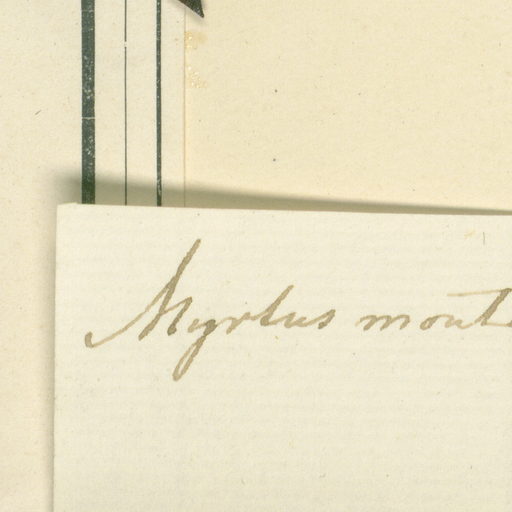 Myrtus mont